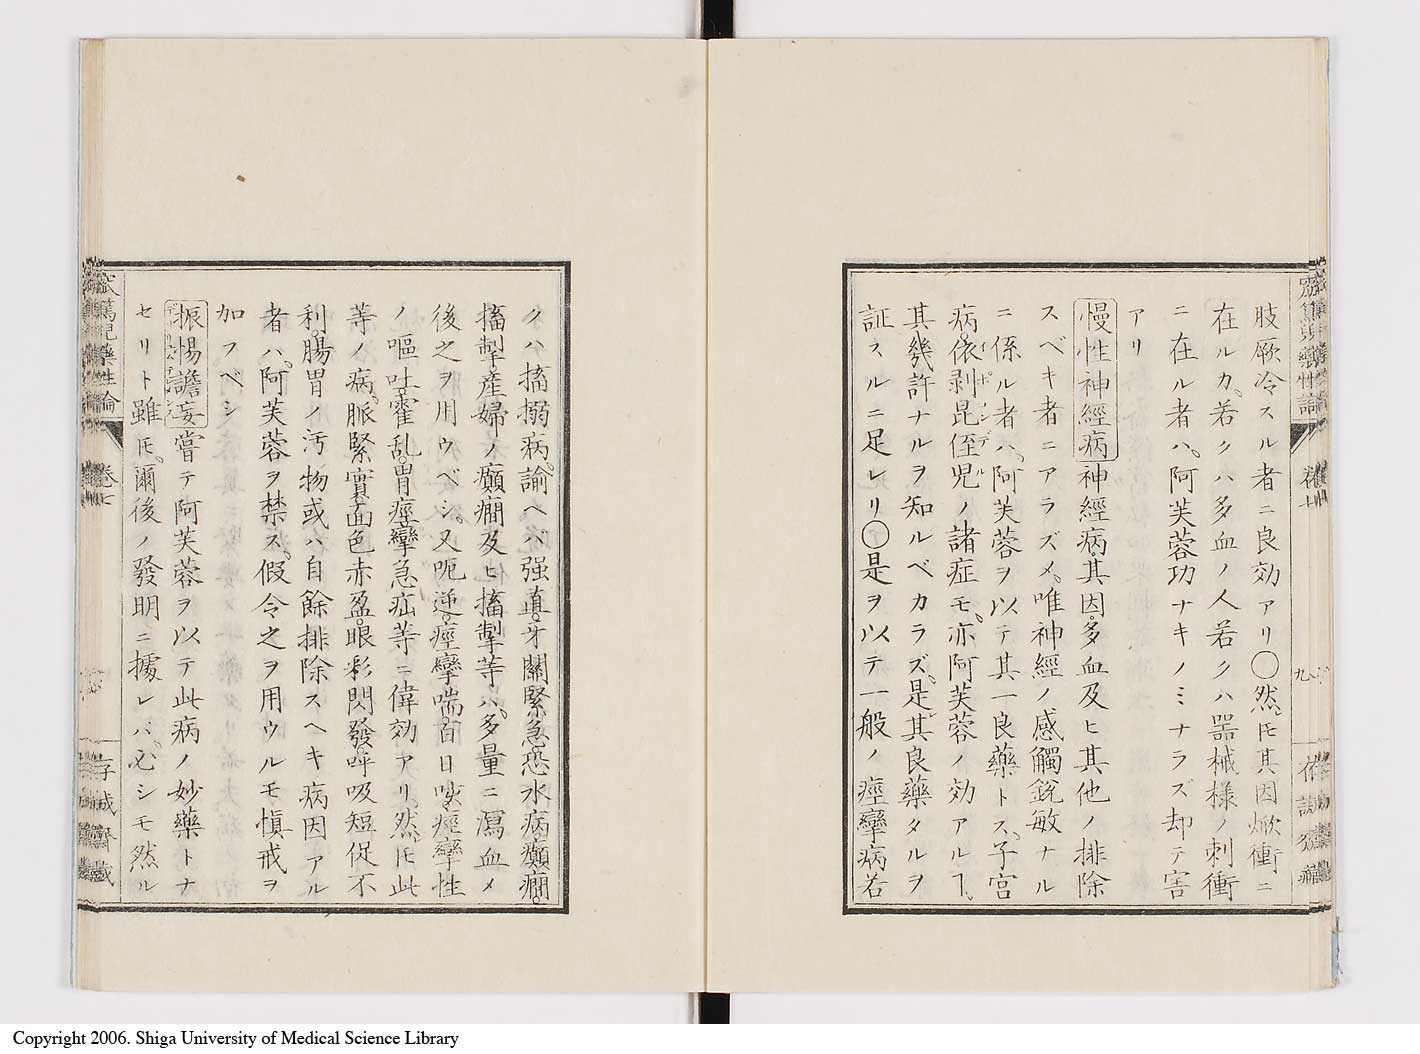 肢厥冷スル者ニ良効アリ〇然𪜈其因焮衝ニ
在ルカ。若クハ多血ノ人若クハ噐械様ノ刺衝
ニ在ル者ハ。阿芙蓉功ナキノミナラズ却テ害
アリ
慢性神經病神經病。其因。多血及ヒ其他ノ排除
スベキ者ニアラズメ。唯神經ノ感觸銳敏ナル
ニ係ル者ハ。阿芙蓉ヲ以テ其一良藥トス。子宮
病。依剥昆侄児ノ諸症モ。亦阿芙蓉ノ効アルヿ。
其幾許ナルヲ知ルベカラズ。是其良藥タルヲ
証スルニ足レリ〇是ヲ以テ一般ノ痙攣病若
クハ搐搦病。諭ヘバ强直。牙關緊急。恐水病。癲癇。
搐掣。產婦ノ癲癇及ヒ搐掣等ハ。多量ニ瀉血メ
後之ヲ用ウベシ。又呃逆。痙攣喘。百日咳。痙攣性
ノ嘔吐。霍乱。胃痙攣。急疝等ニ偉効アリ。然𪜈此
等ノ病。脈緊實。面色赤盈。眼彩閃發。呼吸短促。不
利。腸胃ノ汚物或ハ自餘排除スヘキ病因アル
者ハ。阿芙蓉ヲ禁ス。假令之ヲ用ウルモ愼戒ヲ
加フベシ
振揚譫妄嘗テ阿芙蓉ヲ以テ此病ノ妙藥トナ
セリト雖𪜈。爾後ノ發明ニ據レバ。必シモ然ル
窊篤児藥性論 卷七
存誠齋蔵
Copyright 2006. Shiga University of Medical Science Library